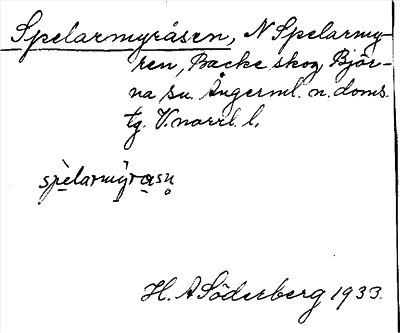 Spelarmyråsen, N Spelarmy-
ren, Backe skog Björ-
na sn. Ångerml. n. doms.
tg. V. norrl. l.
spèlarmỳrasn̥
H. A Söderberg 1933.